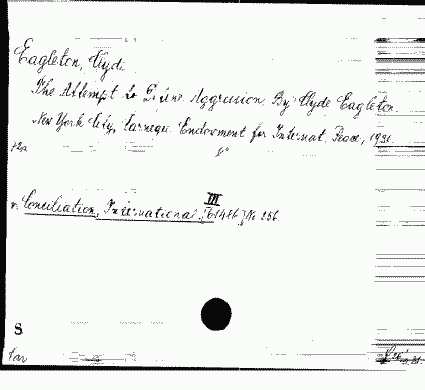 Eagleton, Clyde
The Attempt to Define Aggression, By Clyde Eagleton.
New York City, Carnegie Endowment for Internat. Peace, 1931.
8°
III
v. Conciliation, International [61466] No 256.
S